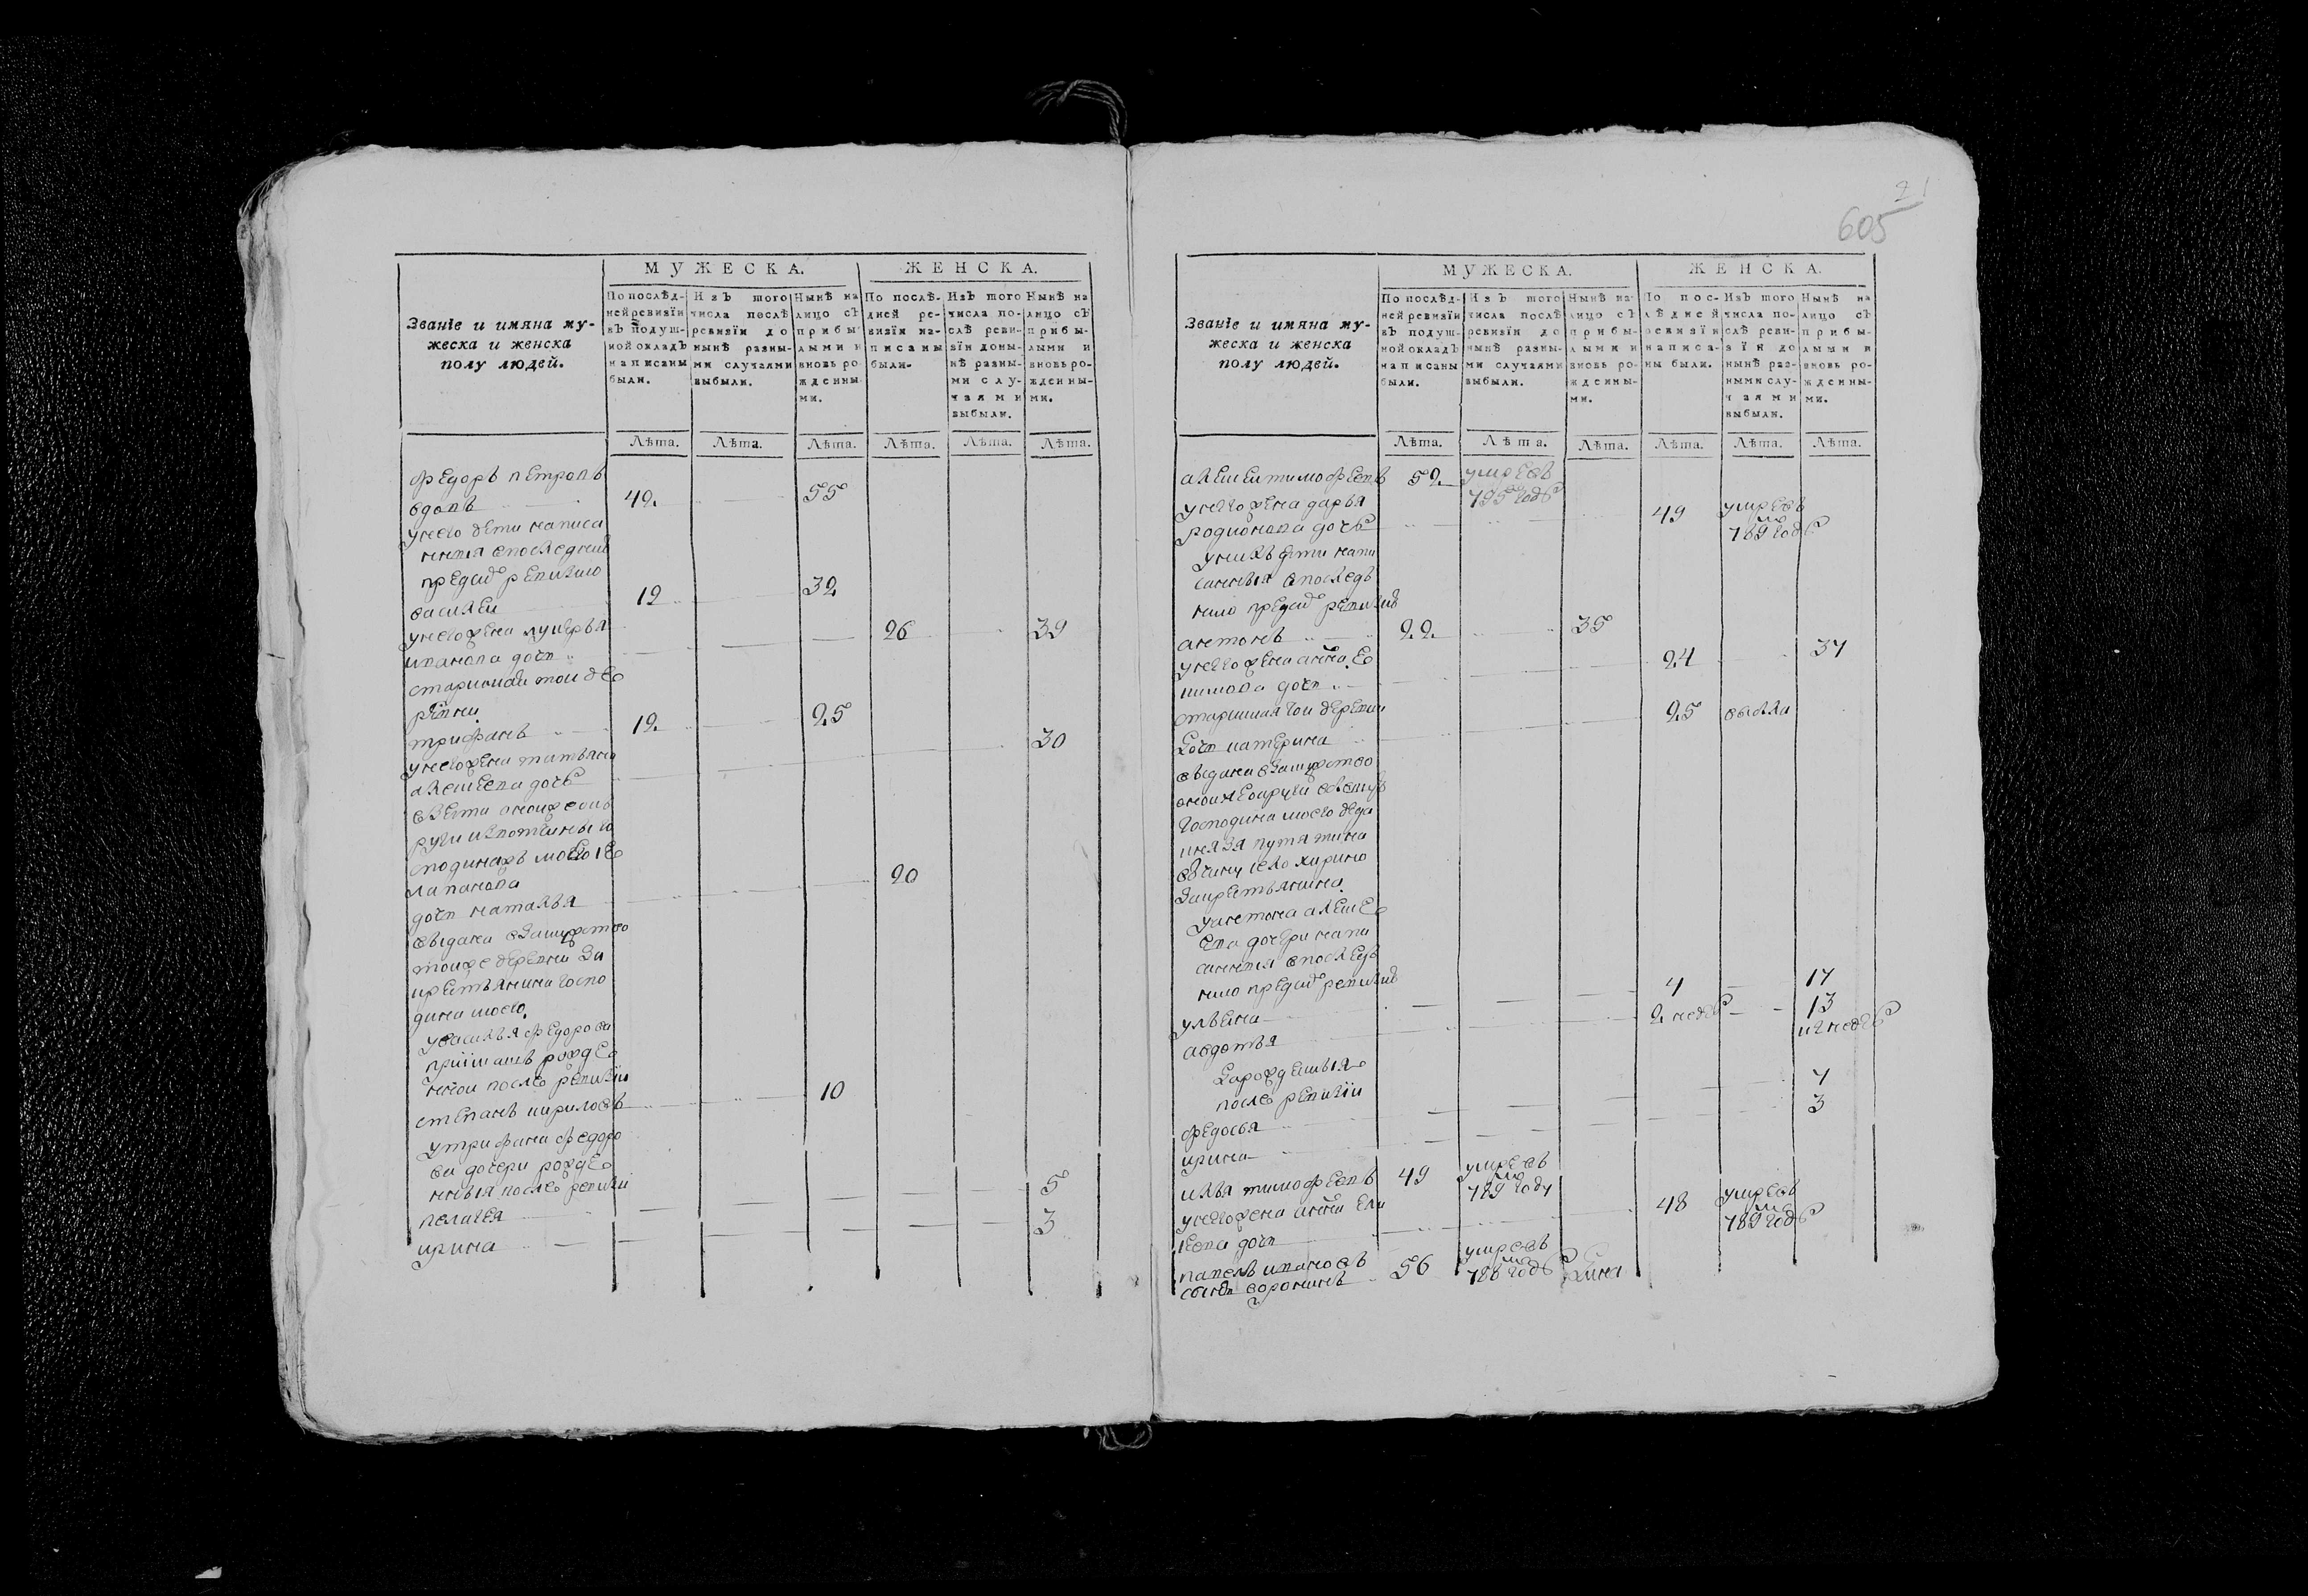 МУЖЕСКА. ЖЕНСКА.
Званіе и имяна му-
жеска и женска
полу людей.
По послѣд-
ней ревизіи
въ подуш-
ной окладъ
написаны
были.
Изъ того
числа послѣ
ревизіи до
нынѣ разны-
ми случаями
выбыли.
Нынѣ на
лицо съ
прибы-
лыми и
вновь ро-
жденны-
ми.
По послѣ-
дней ре-
визіи на-
писаны
были.
Изъ того
числа по-
слѣ реви-
зіи доны-
нѣ разны-
ми слу-
чаями
выбыли.
Нынѣ на
лицо съ
прибы-
лыми и
вновь ро-
жденны-
ми.
Лѣта. Лѣта. Лѣта. Лѣта. Лѣта. Лѣта.
федоръ петровъ
вдовъ 42 55
унего дети написа
нныя впоследнию
предидъ ревизию
василеи 19 32
унегожена лукерья 26 39
иванова дочь
старинная тои де
ревни
трифанъ 12 25
унегожена татьяна 30
алексеева дочь
взета
господина моего
дочь наталья 20
выдана взамужство
тоиже деревни за
крестьянина госпо
дина моего
увасилья федорова
приимашъ рожде
нной после ревизии
степанъ кириловъ 10
утрифана федоро
ва дочери рожде
нныя после ревизии
пелагея 5
ирина 3
21
605
МУЖЕСКА. ЖЕНСКА.
Званіе и имяна му-
жеска и женска
полу людей.
По послѣд-
ней ревизіи
въ подуш-
ной окладъ
написаны
были.
Изъ того
числа послѣ
ревизіи до
нынѣ разны-
ми случаями
выбыли.
Нынѣ на-
лицо съ
прибы-
лыми и
вновь ро-
жденны-
ми.
По пос-
лѣдней
ревизіи
написа-
ны были.
Изъ того
числа по-
слѣ реви-
зіи до
нынѣ раз-
ными слу-
чаями
выбыли.
Нынѣ на
лицо съ
прибы-
лыми и
вновь ро-
жденны-
ми.
Лѣта. Лѣта. Лѣта. Лѣта. Лѣта. Лѣта.
алексеи тимофеевъ 52 умре въ
795 годе
унегожена дарья 49 умре въ
родионова дочь 789 годе
унихъ дети напи
санныя впоследъ
нию предидъ ревизию
антонъ 22 35
унегожена анна 24 37
кимова дочь
старинная тои деревни
дочь катерина 25 выбыла
выдана взамужство
господина моего деда
князя путятина
вотчину село
закрестьянина
уантона алексе
ева дочери напи
санныя впоследъ
нию предидъ ревизию
ульяна 4 17
авдотья 2 недели 13
и 2 недели
зарожденныя
после ревизии
федосья 7
ирина 3
илья тимофеевъ 49 умре въ
789 году
унегожена анна 48 умре въ
дочь 789 годе
павелъ ивановъ 56 умре въ
сынъ воронинъ 786 годе жена